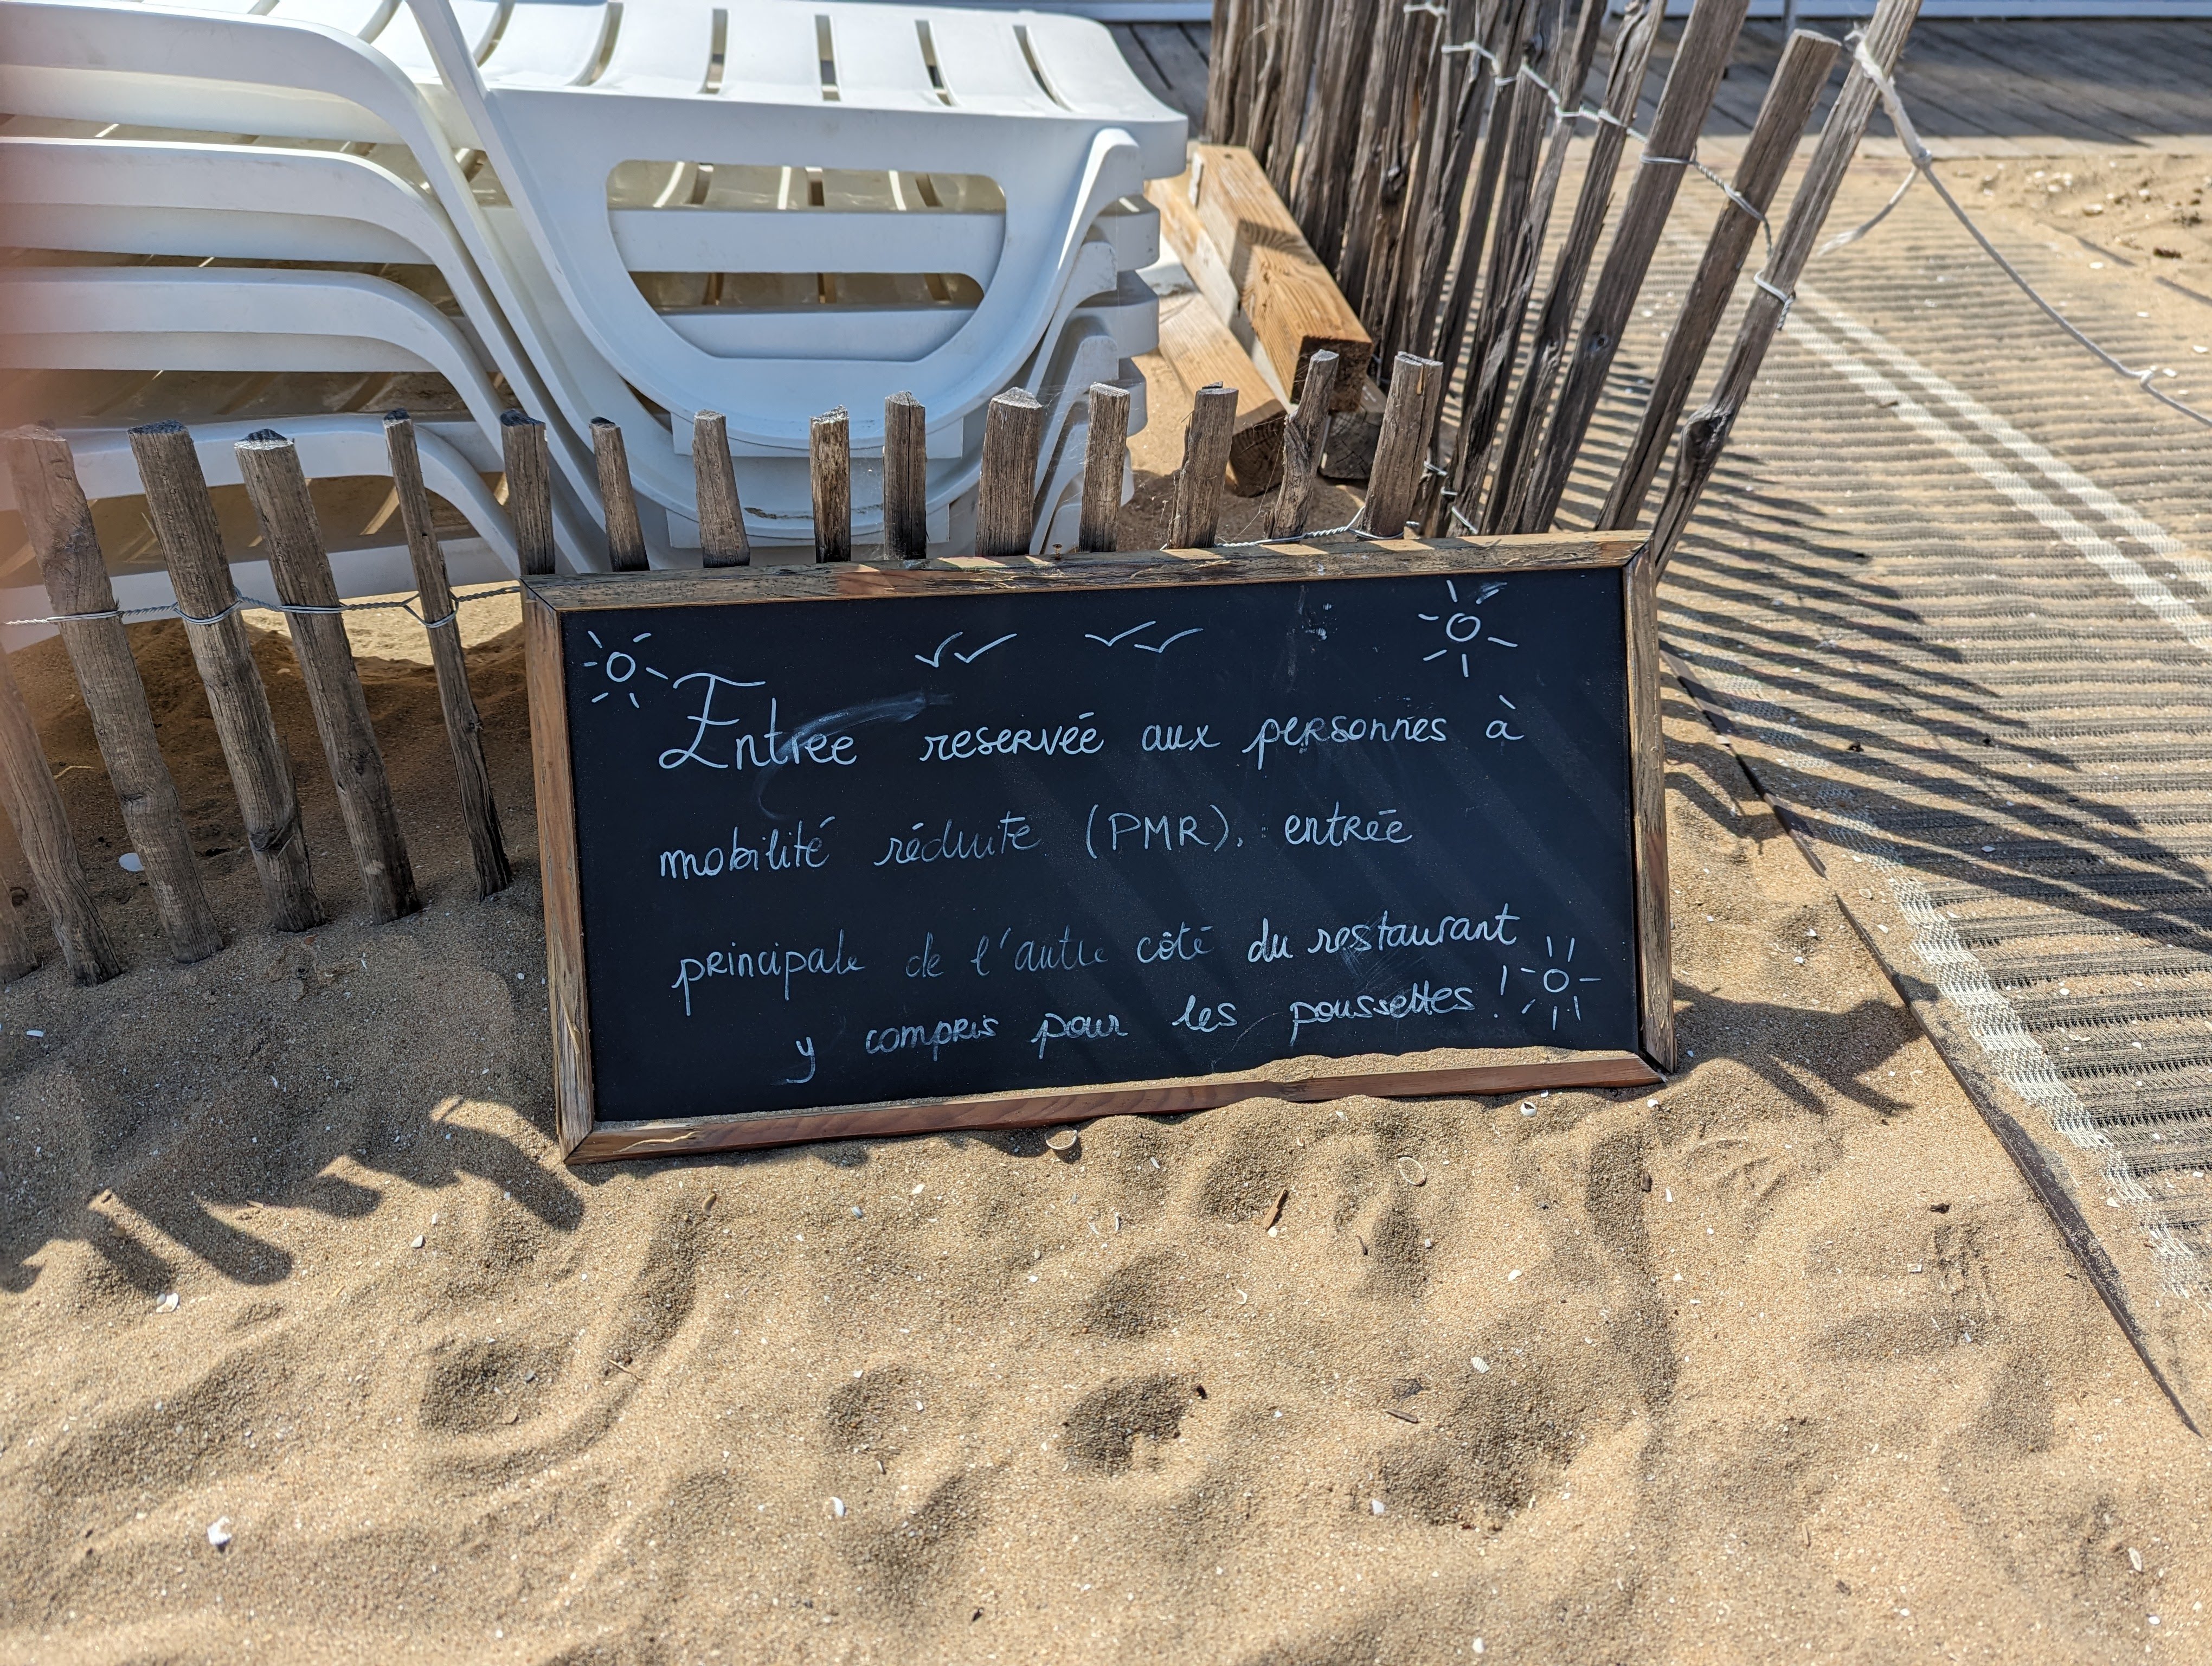 Entrée reservée aux personnes à
mobilité réduite (PMR), entrée
principale de l'autre côté du restaurant
y compris pour les poussettes !